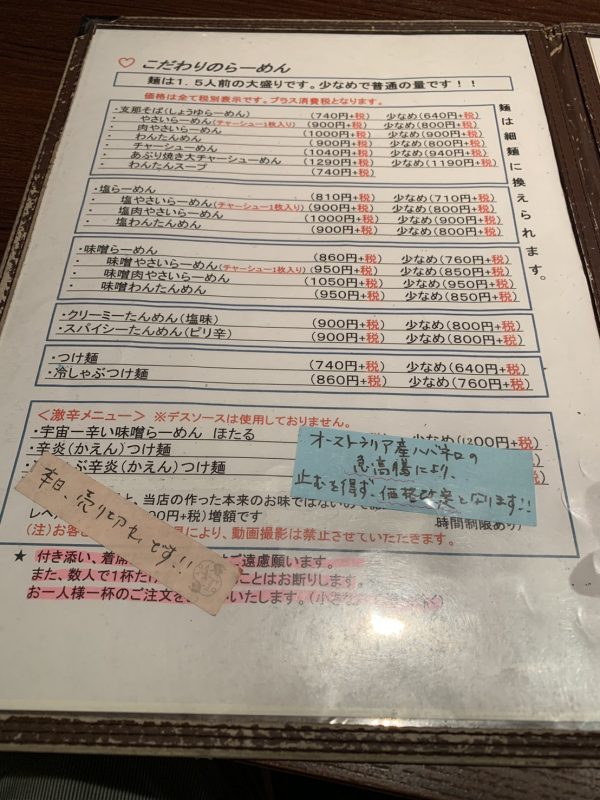 ♡ こだわりのらーめん
麺は1.5人前の大盛りです。少なめで普通の量です!!
価格は全て税別表示です。プラス消費税となります。
・支那そば(しょうゆらーめん) (740円+税) 少なめ(640円+税)
・ やさいらーめん(チャーシュー1枚入り) (900円+税) 少なめ(800円+税)
・ 肉やさいらーめん (1000円+税) 少なめ(900円+税)
・ わんたんめん (900円+税) 少なめ(800円+税)
・ チャーシューめん (1040円+税) 少なめ(940円+税)
・ あぶり焼き大チャーシューめん (1290円+税) 少なめ(1190円+税)
・ わんたんスープ (740円+税)
麺は細麺に換えられます。
・塩らーめん (810円+税) 少なめ(710円+税)
・ 塩やさいらーめん(チャーシュー1枚入り) (900円+税) 少なめ(800円+税)
・ 塩肉やさいらーめん (1000円+税) 少なめ(900円+税)
・ 塩わんたんめん (900円+税) 少なめ(800円+税)
・味噌らーめん (860円+税) 少なめ(760円+税)
・ 味噌やさいらーめん(チャーシュー1枚入り) (950円+税) 少なめ(850円+税)
・ 味噌肉やさいらーめん (1050円+税) 少なめ(950円+税)
・ 味噌わんたんめん (950円+税) 少なめ(850円+税)
・クリーミーたんめん(塩味) (900円+税) 少なめ(800円+税)
・スパイシーたんめん(ピリ辛) (900円+税) 少なめ(800円+税)
・つけ麺 (740円+税) 少なめ(640円+税)
・冷しゃぶつけ麺 (860円+税) 少なめ(760円+税)
<激辛メニュー> ※デスソースは使用しておりません。
・宇宙一辛い味噌らーめん ほたる 少なめ(1200円+税)
・辛炎(かえん)つけ麺
ぶ辛炎(かえん)つけ麺
オーストラリア産ハバネロの
急高騰により、
止むを得ず、価格改定となります!!
本日、売り切れです!!
と、当店の作った本来のお味ではないので
レベ 00円+税)増額です 時間制限あり)
(注)お客 により、動画撮影は禁止させていただきます。
★ 付き添い、着席 ご遠慮願います。
また、数人で1杯だけ ことはお断りします。
お一人様一杯のご注文を いいたします。(小さな